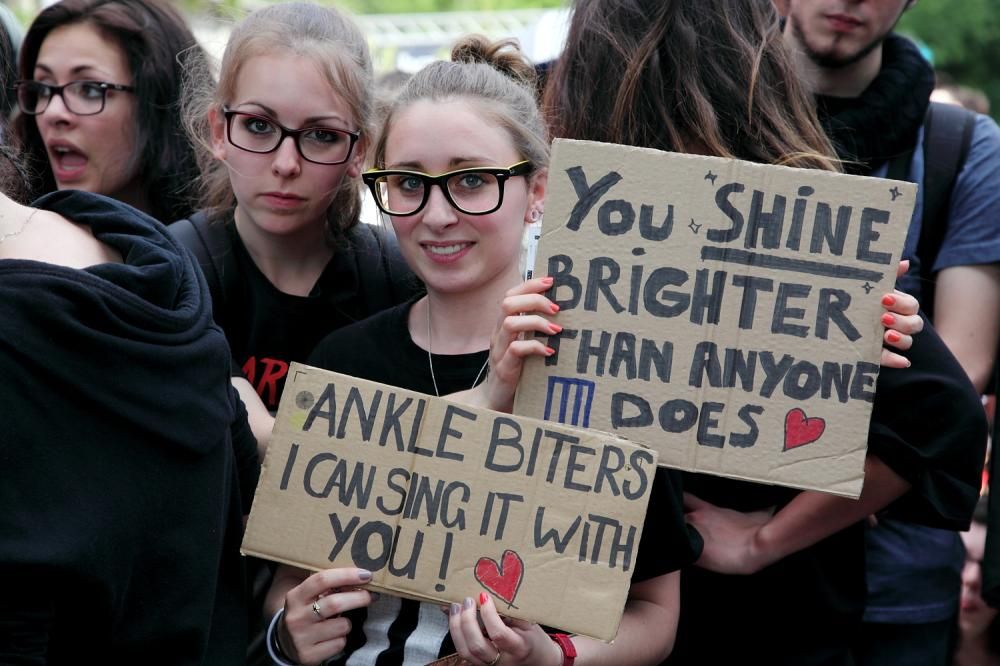 YOU SHINE
BRiGHTER
THAN ANYONE
DOES
ANKLE BITERS
I CAN SING IT WITH
YOU!